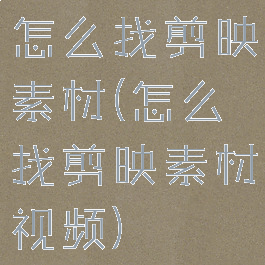 怎么找剪映
素材(怎么
找剪映素材
视频)